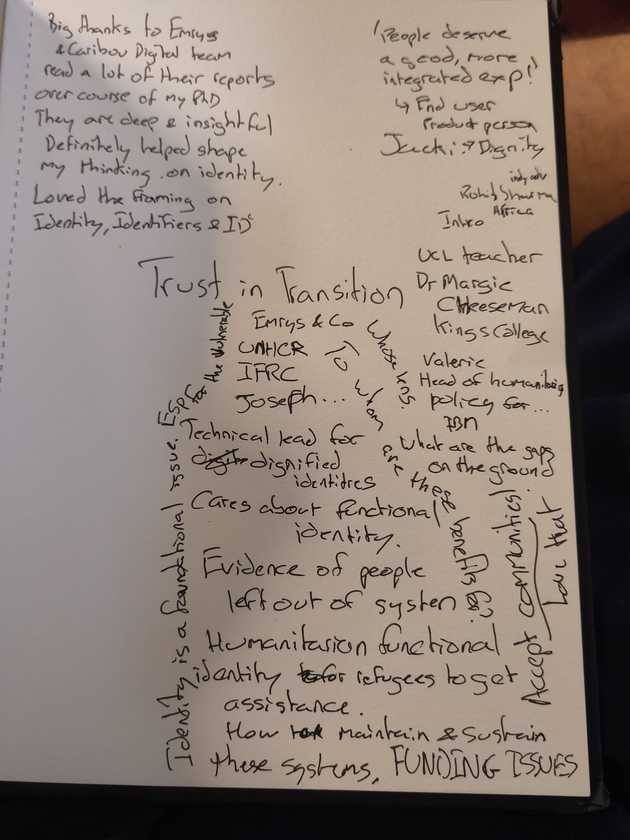 Big thanks to Emrys
& Caribou Digital team
read a lot of their reports
over course of my PhD
They are deep & insightful
Definitely helped shape
my thinking on identity.
Loved the framing on
Identity, Identifiers & ID
'People deserve
a good, more
integrated exp!
↳ End user
Product person
Jacki → Dignity
Rohit Sharma
Intro Africa
UCL teacher
Dr Margie
Cheeseman
Kings College
Valerie
Head of humanitarian
policy for...
IBM
what are the gaps
on the ground
Trust in Transition
Emrys & Co
UNHCR
IFRC
Joseph...
Technical lead for
dignified
identities
Cares about functional
identity.
Evidence of people
left out of system
Humanitarian functional
identity for refugees to get
assistance.
How maintain & sustain
these systems, FUNDING ISSUES
Identity is a foundational issue. Esp. for the vulnerable
To whom are these benefits for?
Accept communities!
Love that